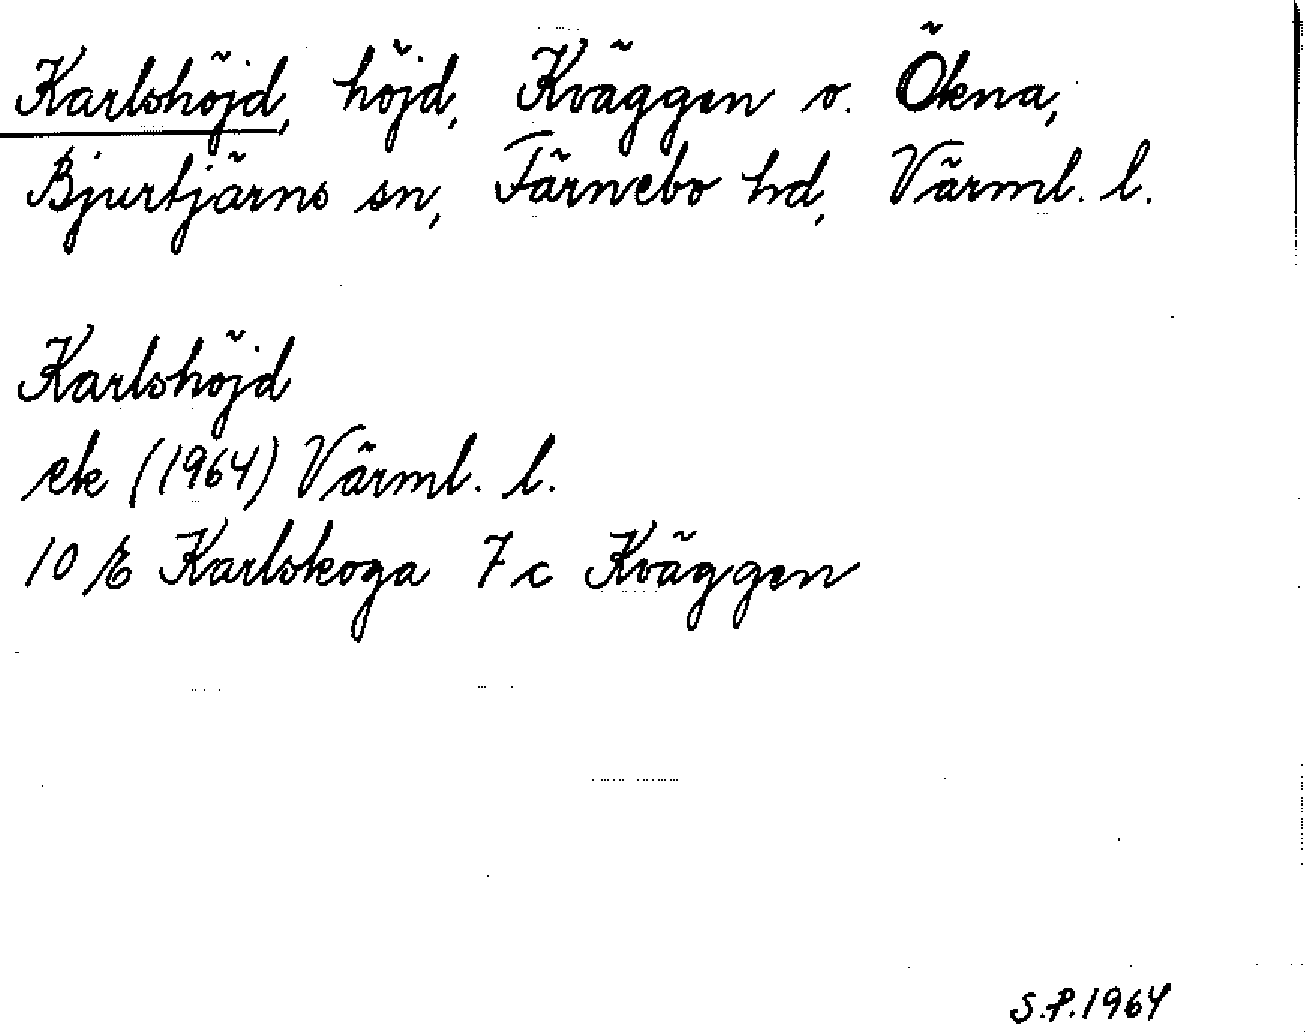 Karlshöjd, höjd, Kväggen v. Ökna,
Bjurtjärns sn, Färnebo hd, Värml. l.
Karlshöjd
ek (1964) Värml. l.
10 E Karlskoga 7 c Kväggen
S.P. 1964